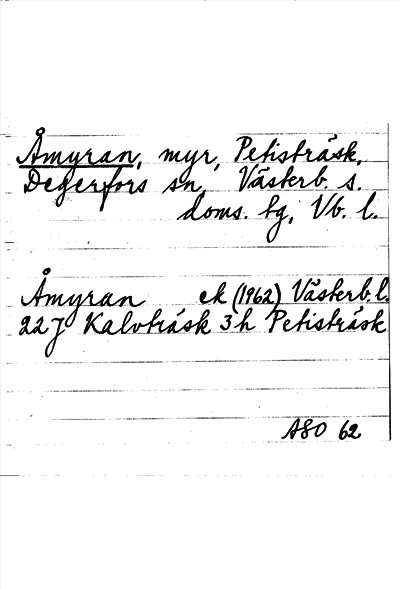 Åmyran, myr, Petisträsk,
Degerfors sn, Västerb. s.
doms. tg, Vb. l.
Åmyran ek (1962) Västerb. l.
22 J Kalvträsk 3h Petisträsk
ASO 62